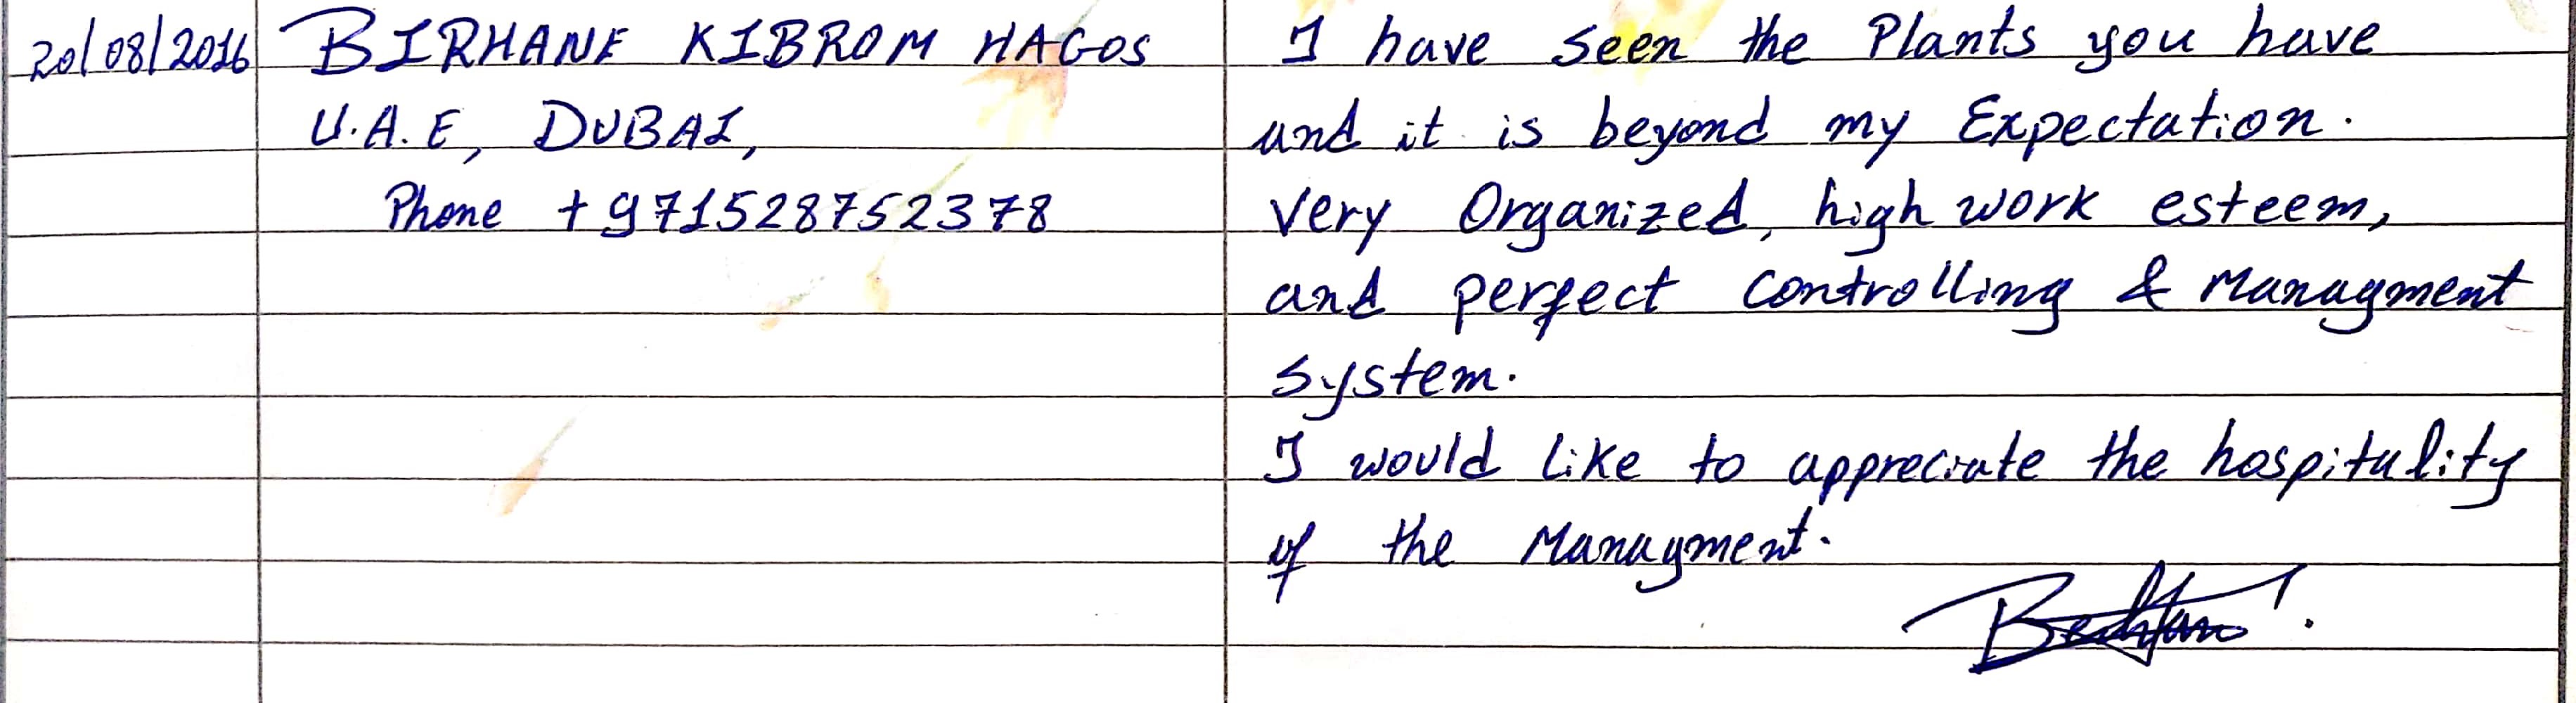 20/08/2016
BIRHANE KIBROM HAGOS
U.A.E, DUBAI,
Phone +971528752378
I have seen the Plants you have
and it is beyond my Expectation.
very Organized, high work esteem,
and perfect controlling & Managment
system.
I would like to appreciate the hospitality
of the Managment.